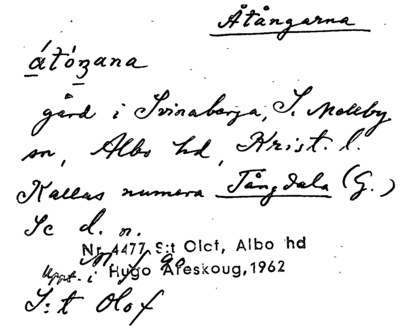 Åtångarna
átóꝫana
gård i Svinaberga, S. Mellby
sn, Albo hd, Krist. l.
Kallas numera Tångdala (G.)
Se d. n.
Nr 4477 S:t Olof, Albo hd
Uppt. i Hugo Areskoug, 1962
S:t Olof